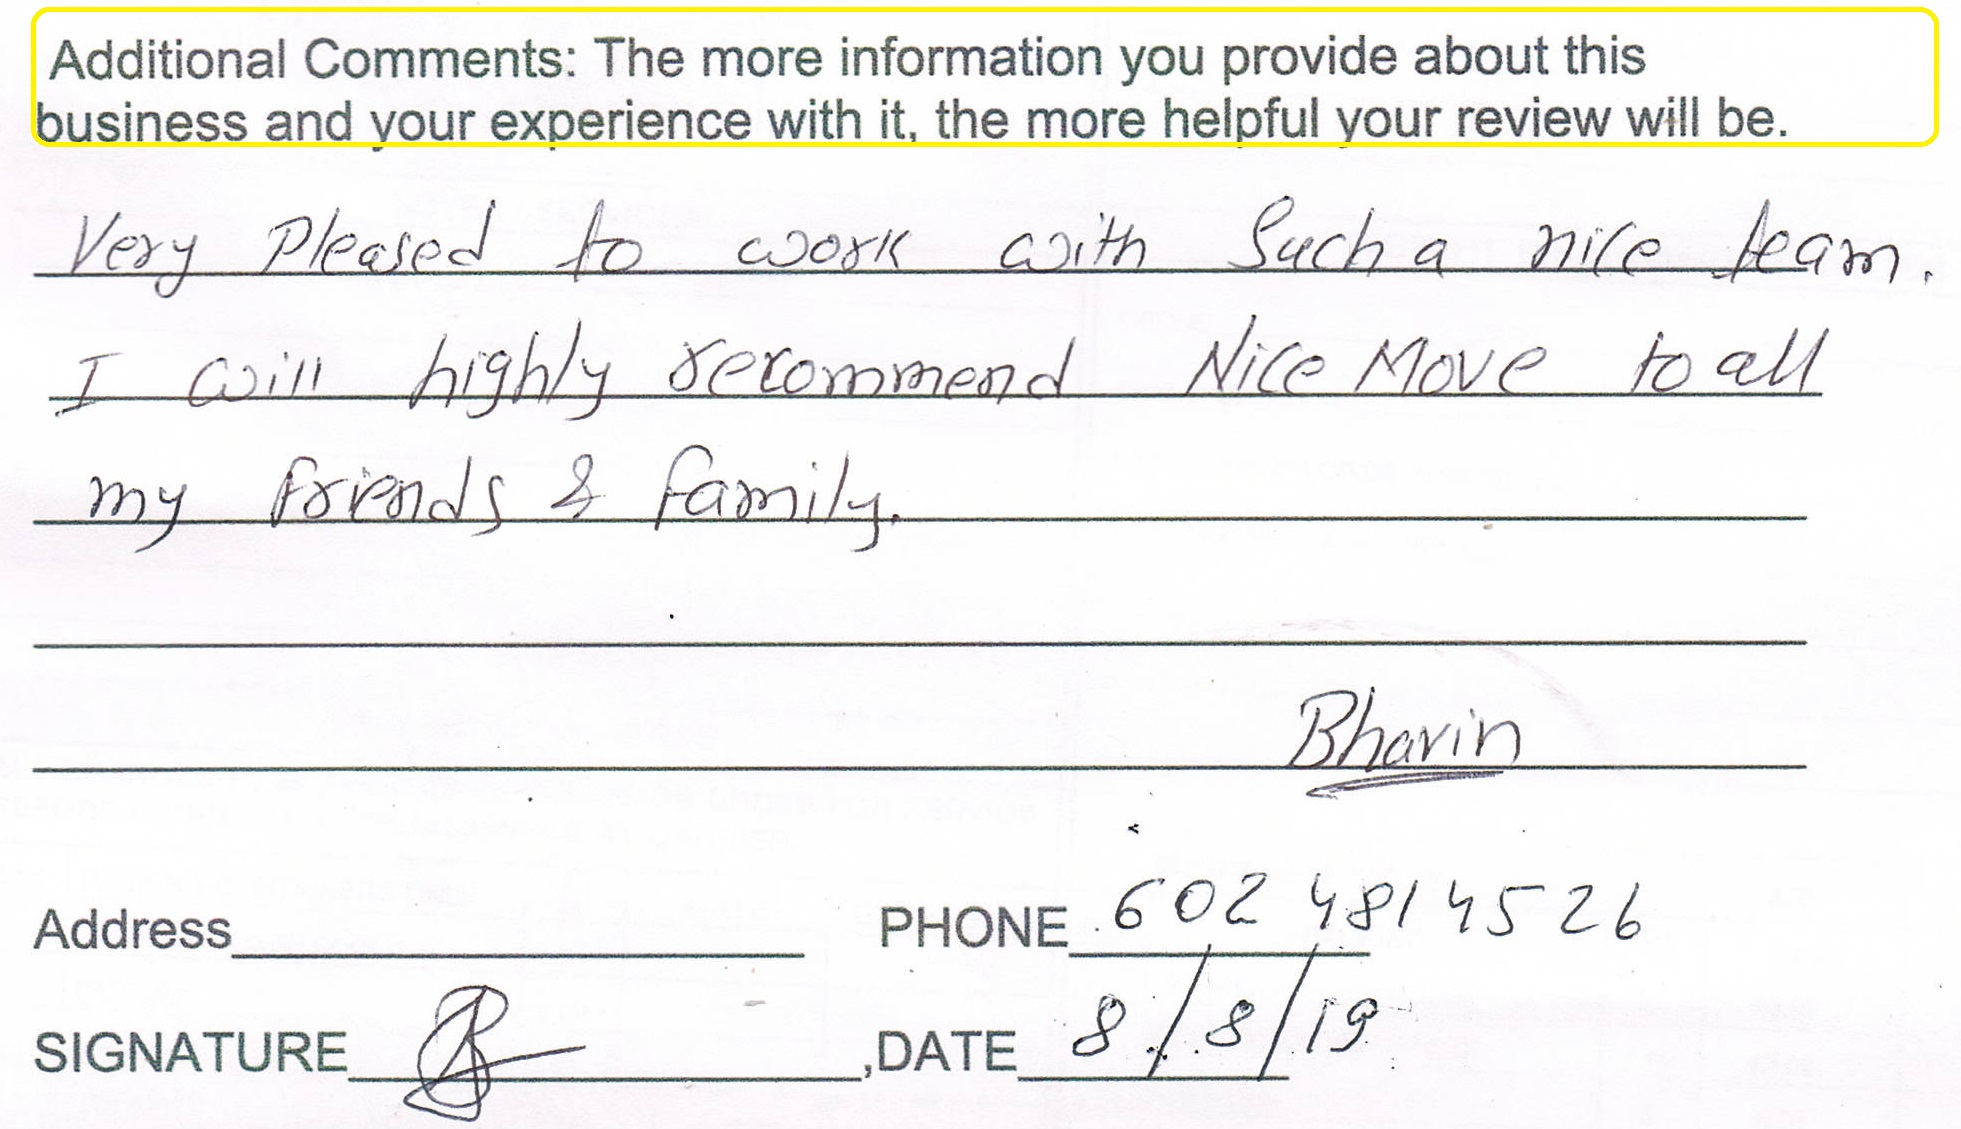 Additional Comments: The more information you provide about this
business and your experience with it, the more helpful your review will be.
Very Pleased to work with Such a nice team.
I will highly recommend Nice Move to all
my friends & family.
Bhavin
Address PHONE 602 481 4526
SIGNATURE ,DATE 8/8/19